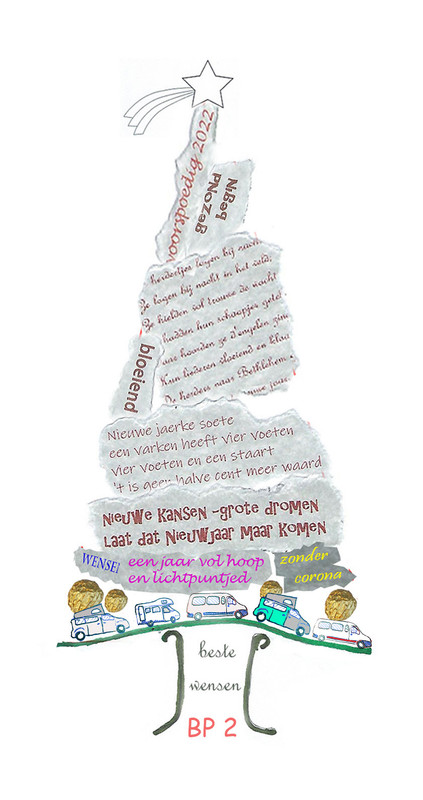 voorspoedig 2022
herdertjes lagen bij nach
Ze lagen bij nacht in het veld.
Ze hielden vol trouwe de wacht
hadden hun schaapjes geteld
aar hoorden ze d'engelen zin
Hun liederen vloeiend en klaa
De herders naar Bethlehem
bloeiend
Nieuwe jaerke soete
een varken heeft vier voeten
vier voeten en een staart
't is geen halve cent meer waard
Nieuwe kansen -grote dromen
Laat dat Nieuwjaar maar komen
WENSE! een jaar vol hoop
en lichtpuntjed
zonder
corona
beste
wensen
BP 2